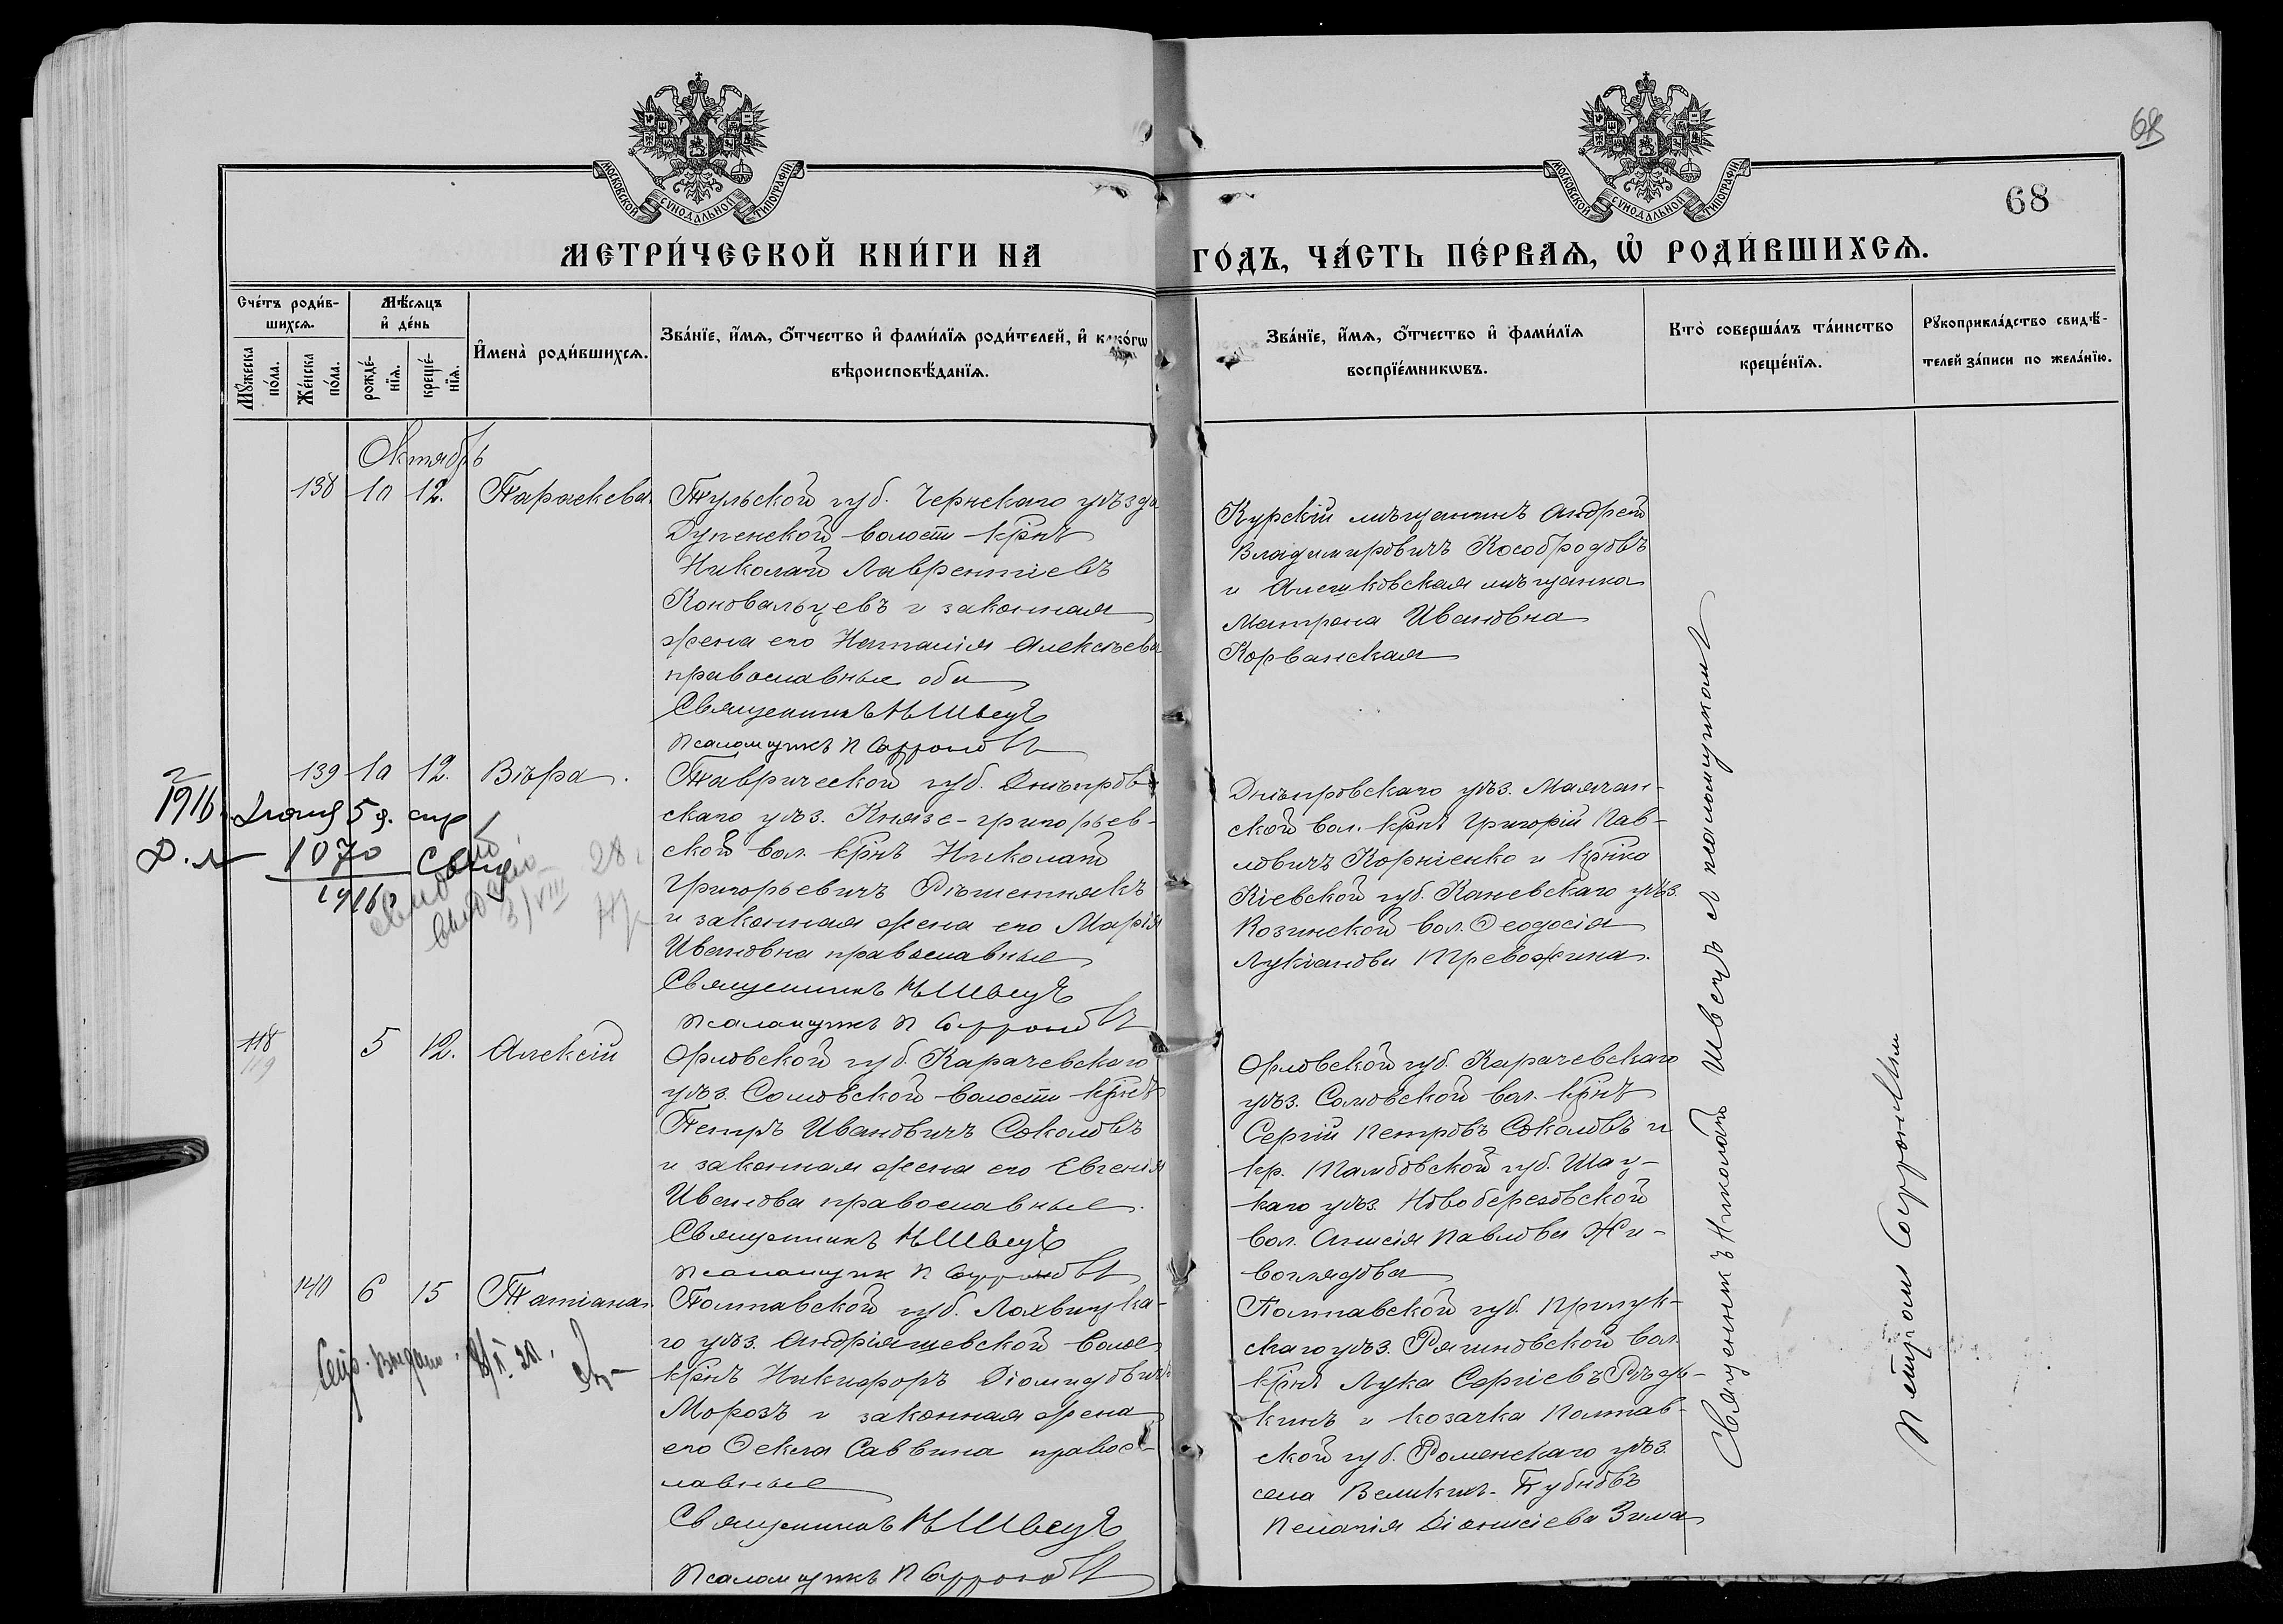 68
68
МОСКОВСКОЙ СѴНОДАЛЬНОЙ ТИПОГРАФІИ
МОСКОВСКОЙ СѴНОДАЛЬНОЙ ТИПОГРАФІИ
МЕТРИ́ЧЕСКОЙ КНИ́ГИ НА
ГО́ДЪ, ЧА́СТЬ ПЕ́РВАѦ, Ѡ҆ РОДИ́ВШИХСѦ.
Сче́тъ роди́в-
шихсѧ.
Мꙋ́жеска
по́ла.
Же́нска
по́ла.
Мѣ́сѧцъ
и҆ де́нь
рожде́-
нїѧ.
креще́-
нїѧ.
И҆мена̀ роди́вшихсѧ.
Зва́нїе, и҆́мѧ, ѻ҆́тчество и҆ фами́лїѧ роди́телей, и҆ како́гѡ
вѣроисповѣ́данїѧ.
Зва́нїе, и҆́мѧ, ѻ҆́тчество и҆ фами́лїѧ
воспрїе́мникѡвъ.
Кто̀ соверша́лъ та́инство
креще́нїѧ.
Рꙋкоприкла́дство свидѣ́-
телей за́писи по жела́нїю.
Октябрь
138 10 12. Параскева
Тульской губ. Чернскаго уѣзда
волости крнъ
Николай Лаврентіевъ
Коновальцевъ и законная
жена его Наталія Алексѣева
православные оба
Священникъ Н Швецъ
Псаломщикъ П Софроновъ
Курскій мѣщанинъ Андрей
Владимировичъ Кособродовъ
и Алешковская мѣщанка
Матрона Ивановна
Корванская
139 10 12. Вѣра.
Таврической губ. Днѣпров-
скаго уѣз. Князе-григорьев-
ской вол. крнъ Николай
Григорьевичъ Рѣшетнякъ
и законная жена его Марія
Ивановна православные
Священникъ Н Швецъ
Псаломщикъ П Софроновъ
Днѣпровскаго уѣз. Маячан-
ской вол. крнъ Григорій Пав-
ловичъ Корніенко и крнка
Кіевской губ. Каневскаго уѣз.
Козинской вол. Ѳеодосія
Лукіанова Тревожина.
1916
5 д.
1070
1916
28
118
119
5 12. Алексій
Орловской губ. Карачевскаго
уѣз. Сомовской волости крнъ
Петръ Ивановичъ Соколовъ
и законная жена его Евгенія
Иванова православные.
Священникъ Н Швецъ
Псаломщик П Софроновъ
Орловской губ. Карачевскаго
уѣз. Сомовской вол. крнъ
Сергій Петровъ Соколовъ и
кр. Тамбовской губ. Шац-
каго уѣз. Новоберезовской
вол. Анисія Павлова Жи-
воглядова
140 6 15 Татіана.
Полтавской губ. Лохвицка-
го уѣз. Андріяшевской волос
крнъ Никифоръ Діомидович
Морозъ и законная жена
его Ѳекла Саввина правос-
лавные
Священникъ Н Швецъ
Псаломщикъ П Софроновъ
Полтавской губ. Прилук-
скаго уѣз. вол.
крнъ Лука Сергіевъ Рѣдь-
кинъ и козачка Полтав-
ской губ. Роменскаго уѣз.
села Великихъ-Бубновъ
Пелагія Діонисіева Зима
Священникъ Николай Швецъ с псаломщикомъ
Петромъ Софроновым